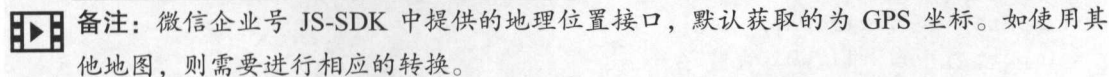 备注：微信企业号 JS-SDK 中提供的地理位置接口，默认获取的为 GPS 坐标。如使用其
他地图，则需要进行相应的转换。